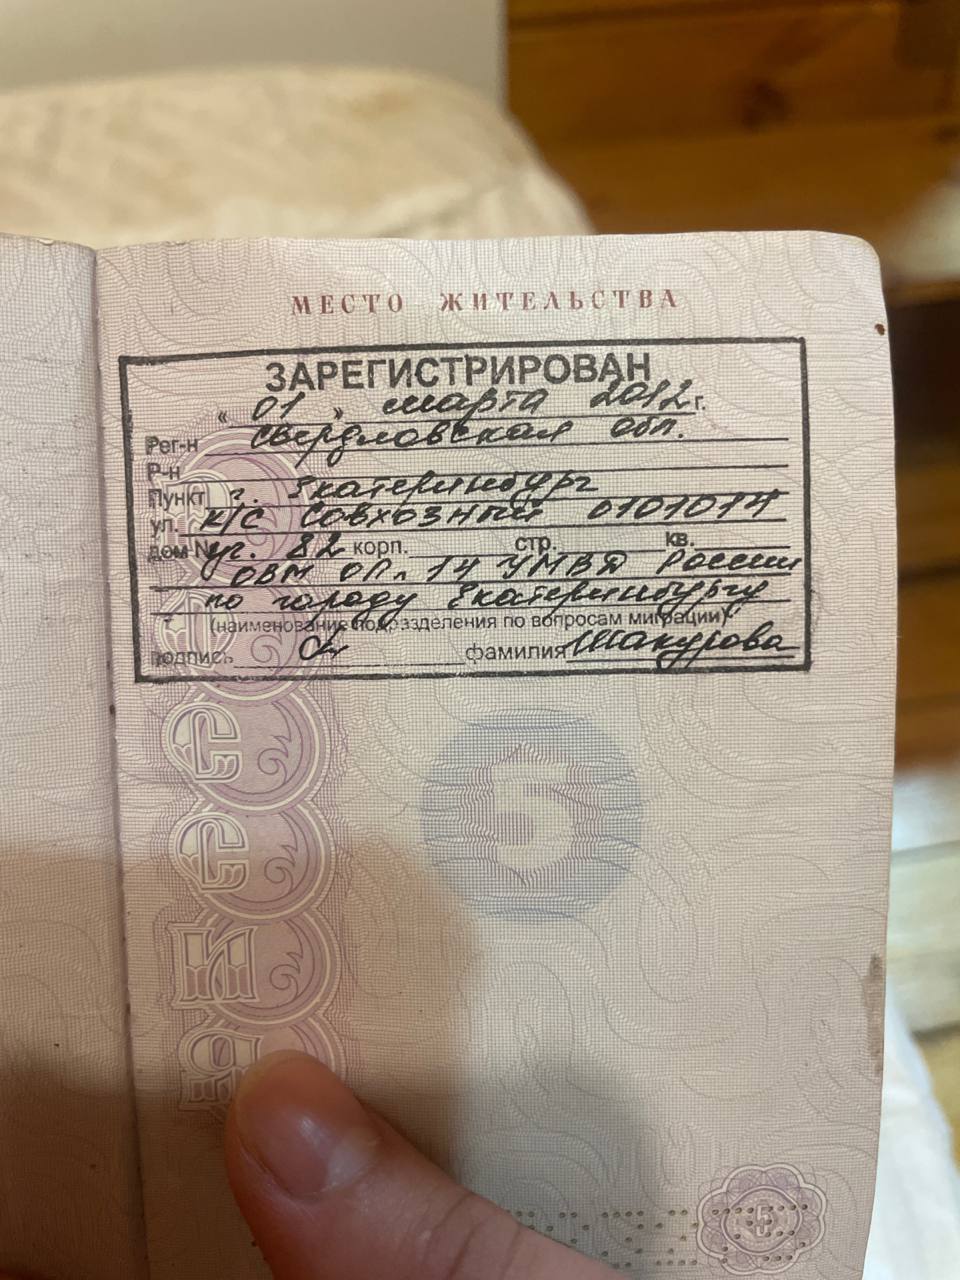 МЕСТО ЖИТЕЛЬСТВА
ЗАРЕГИСТРИРОВАН
« 01 » марта 2012 г.
Рег-н Свердловская обл.
Р-н
Пункт г. Екатеринбург
ул. к/с Совхозный 0101014
дом № уг. 82 корп. стр. кв.
ОВМ ОП. 14 УМВД России
по городу Екатеринбургу
(наименование подразделения по вопросам миграции)
подпись фамилия Шакурова
РОССИЯ
5
5